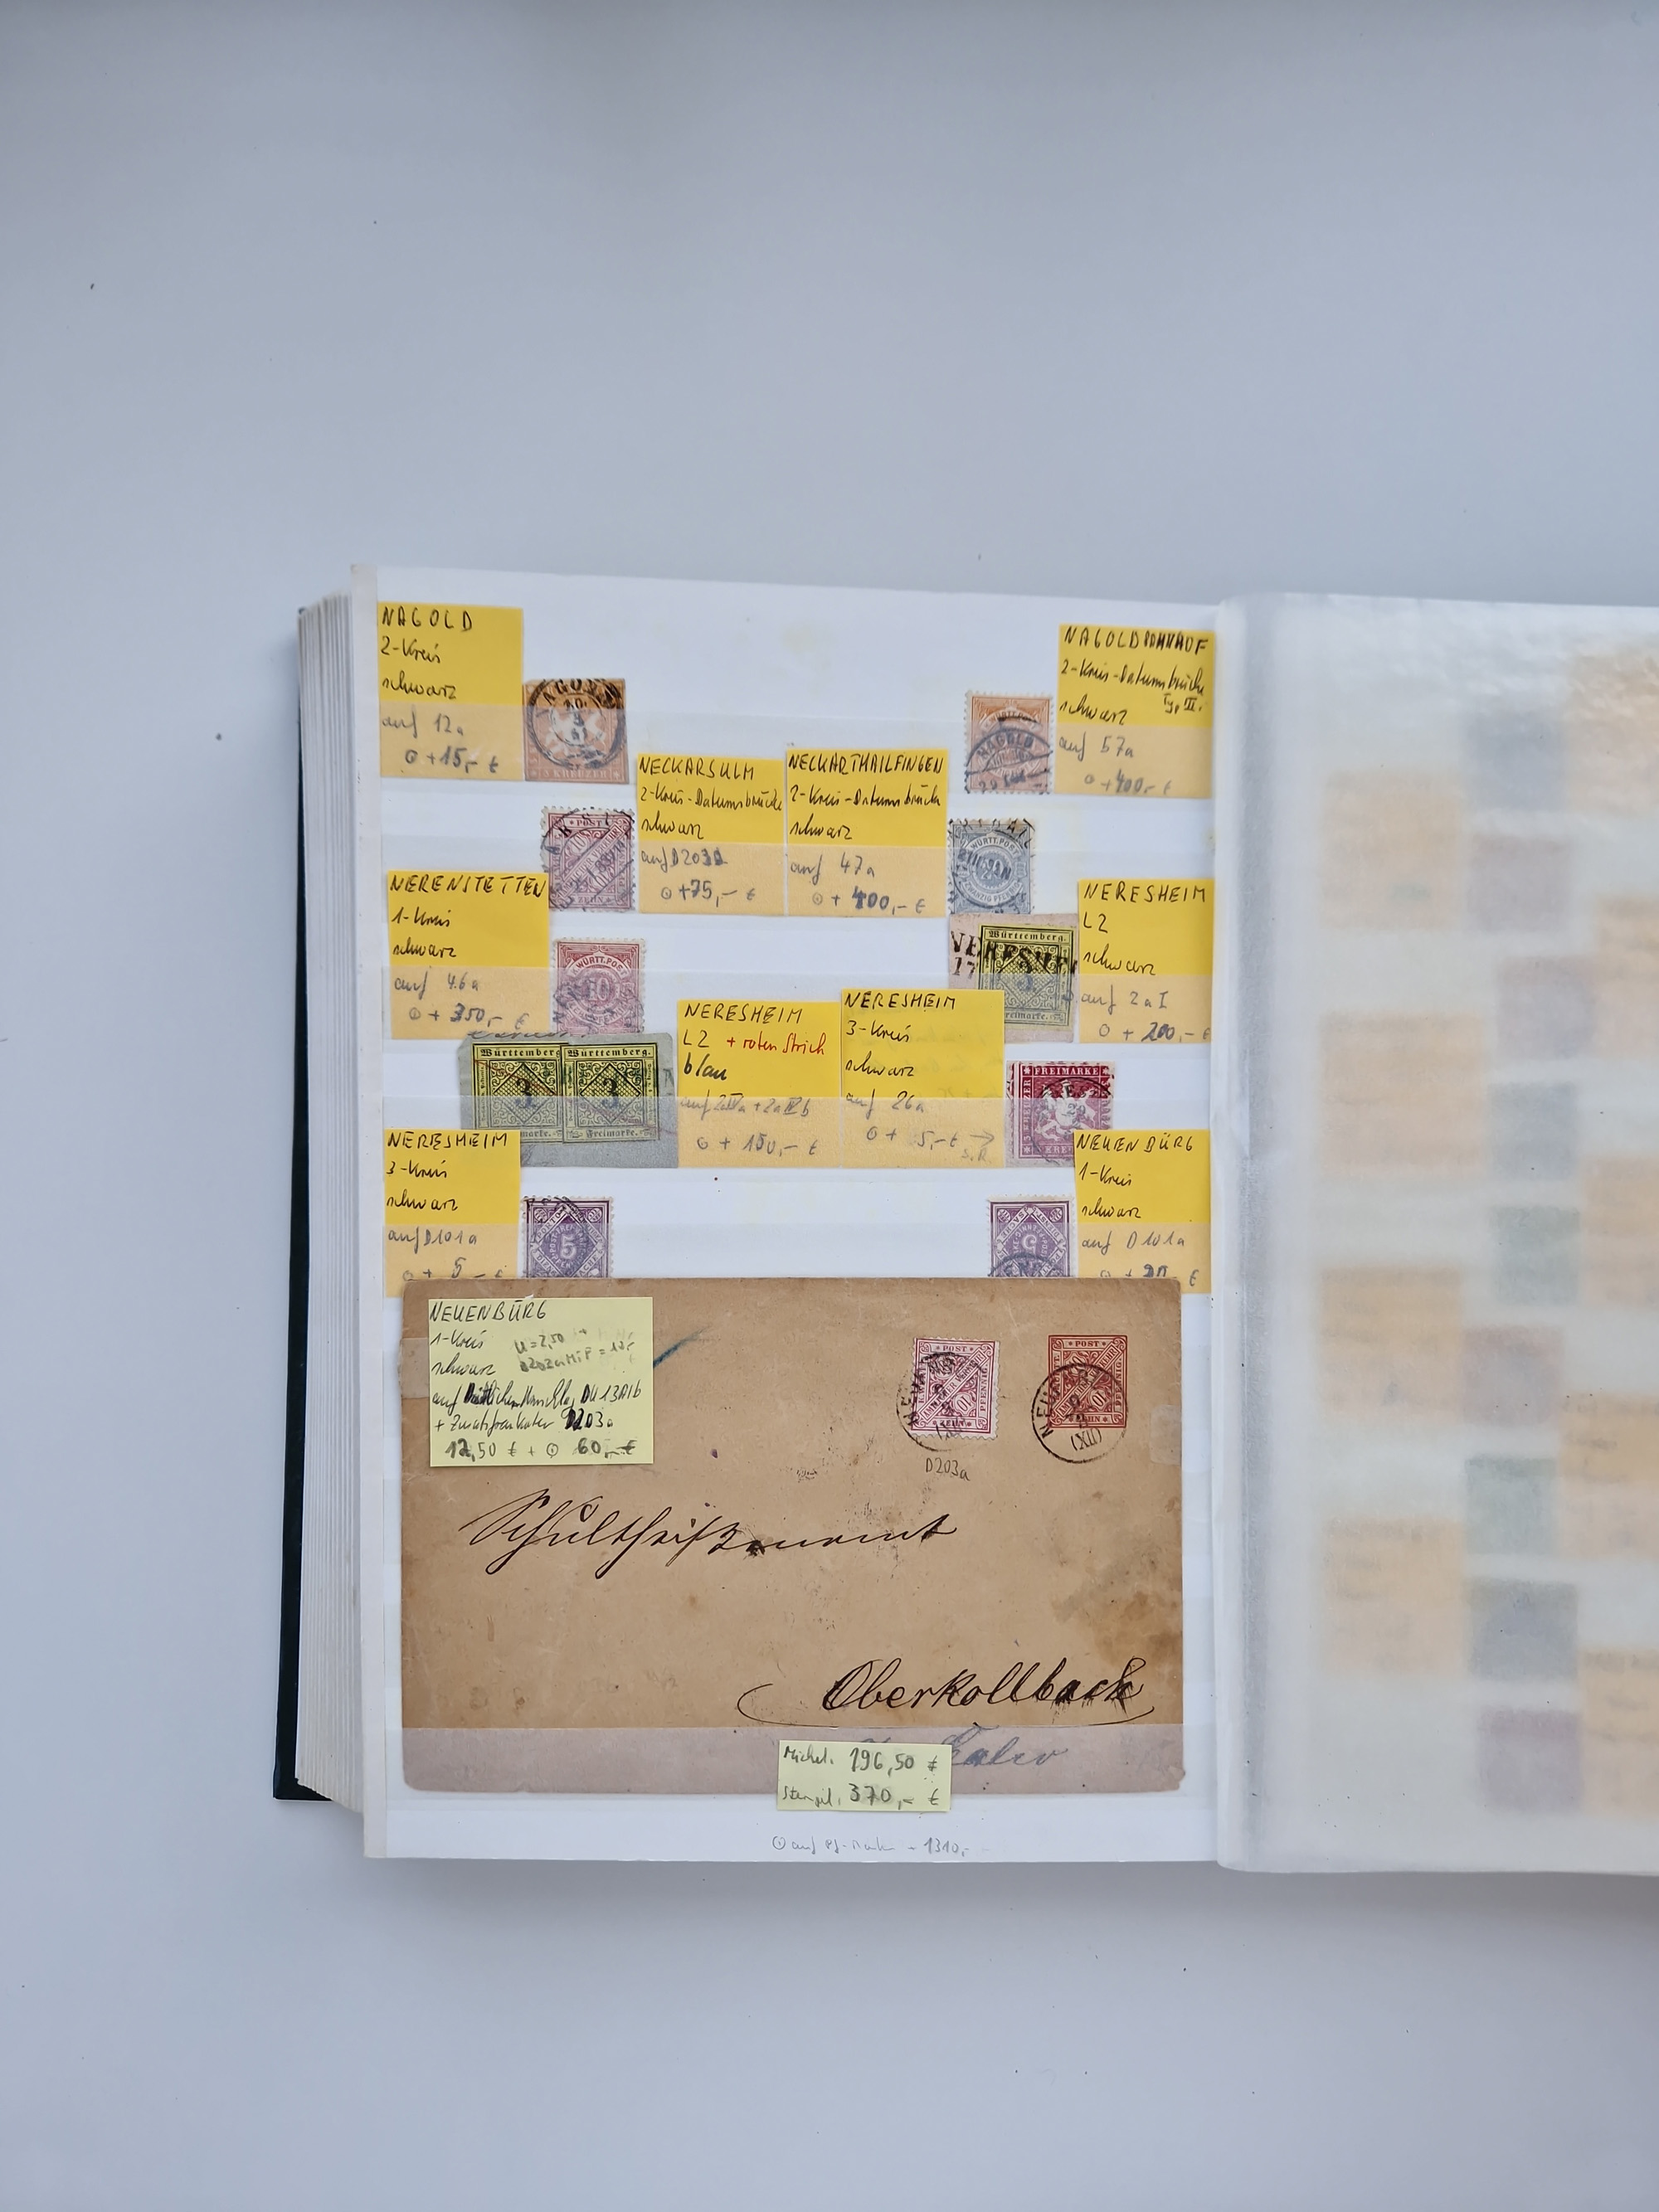 NAGOLD
2-Kreis
schwarz
auf 12a
⊙ +15,- €
NAGOLD BAHNHOF
2-Kreis-Datumsbrücke
Typ III.
schwarz
auf 57a
⊙ +400,- €
NECKARSULM
2-Kreis-Datumsbrücke
schwarz
auf D203a
⊙ +75,- €
NECKARTHAILFINGEN
2-Kreis-Datumsbrücke
schwarz
auf 47a
⊙ + 400,- €
NERENSTETTEN
1-Kreis
schwarz
auf 46a
⊙ + 350,- €
NERESHEIM
L2
schwarz
auf 2aI
⊙ + 200,- €
NERESHEIM
L2 + roten Strich
blau
⊙ + 150,- €
NERESHEIM
3-Kreis
schwarz
auf 26a
⊙ + 5,- € →
s.R.
NERESHEIM
3-Kreis
schwarz
auf D101a
⊙ + 5,- €
NEUENBÜRG
1-Kreis
schwarz
auf D101a
NAGOLD
KREUZER
POST
WÜRTT. POST
10
Württemberg.
3
Freimarke.
Württemberg.
Württemberg.
3
Freimarke.
FREIMARKE
5
NEUENBÜRG
1-Kreis
schwarz
DU 13A1b
+ Zusatzfrankatur D203a
12,50 € + ⊙ 60,- €
POST
PFENNIG
ZEHN
10
POST
PFENNIG
ZEHN
10
(XI)
D203a
Schultheißenamt
Oberkollbach
Calw
Michel. 196,50 €
Stempel. 370,- €
1310,-